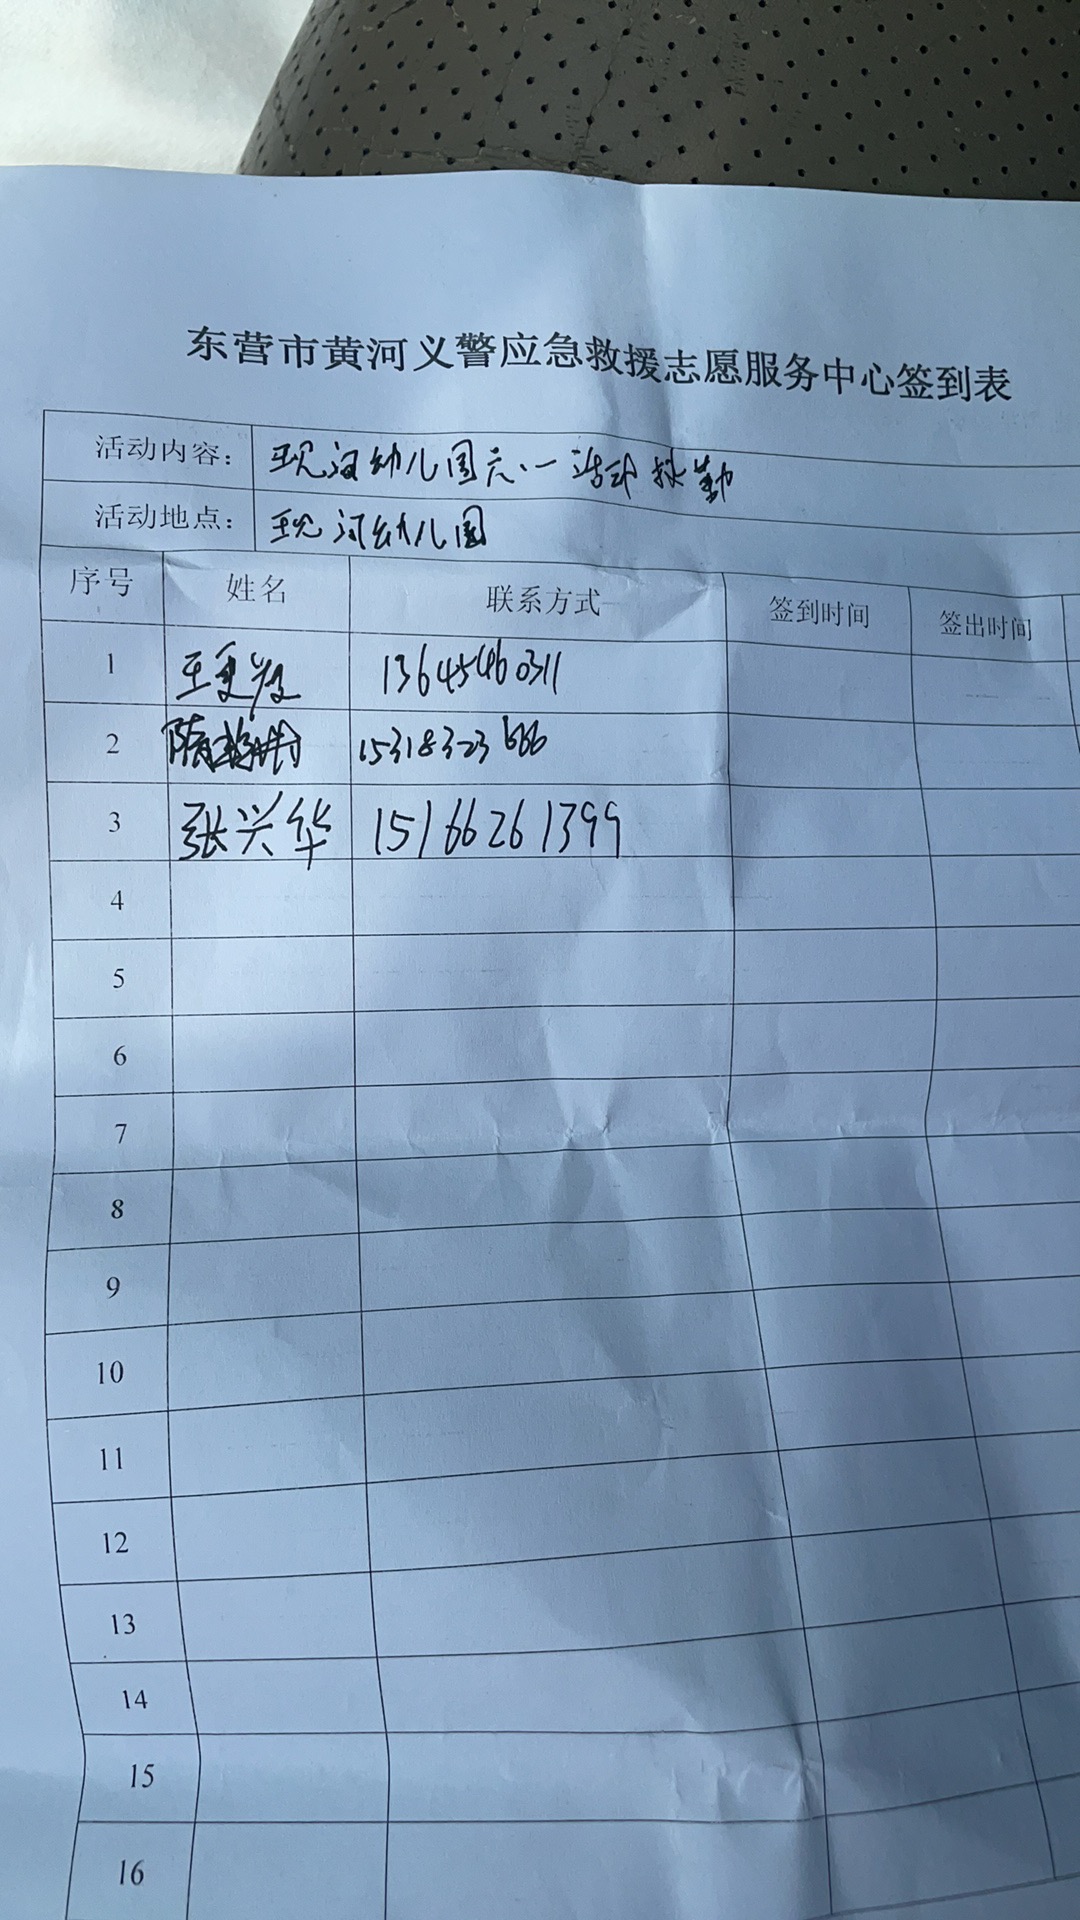 东营市黄河义警应急救援志愿服务中心签到表
活动内容： 现河幼儿园六.一活动执勤
活动地点： 现河幼儿园
序号 姓名 联系方式 签到时间 签出时间
1 王 13645460311
2 隋 15318323666
3 张兴华 15166261399
4
5
6
7
8
9
10
11
12
13
14
15
16